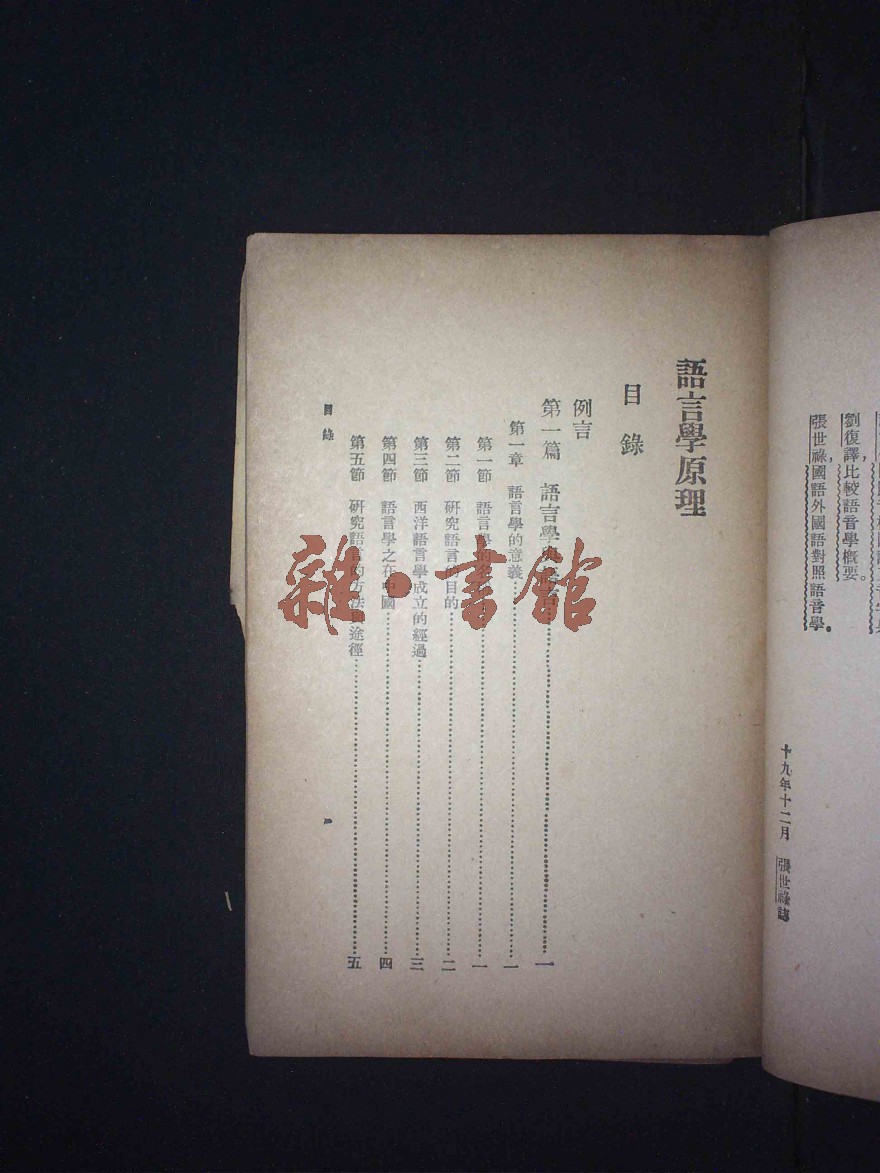 劉復譯，比較語音學概要。
張世祿，國語外國語對照語音學。
十九年十二月　張世祿誌
語言學原理
目錄
例言
第一篇　語言學與………一
第一章　語言學的意義………一
第一節　語言學的名………一
第二節　研究語言的目的………二
第三節　西洋語言學成立的經過………三
第四節　語言學之在中國………四
第五節　研究語言的方法途徑………五
目錄
一
雜·書館